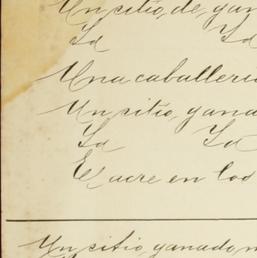 Un sitio, de, gan
Id Id
Una caballeri
Un sitio, gana
Id Id
El acre en los
Un sitio ganado m